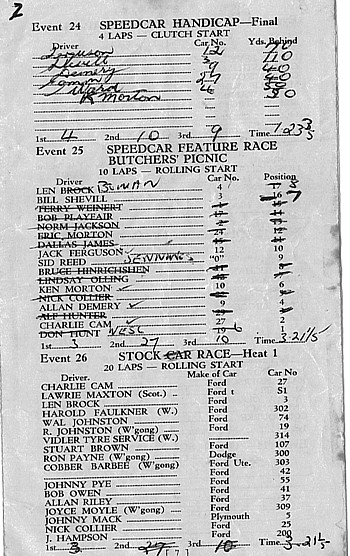 2
Event 24 SPEEDCAR HANDICAP—Final
4 LAPS — CLUTCH START
Driver Car No. Yds. Behind
Ferguson 12
Shevill 3 110
Demery 9 40
27 40
Ward 4
K Morton 30
1st 4 2nd 10 3rd 9 Time 1.23 3/5
Event 25 SPEEDCAR FEATURE RACE
BUTCHERS' PICNIC
10 LAPS — ROLLING START
Driver Car No. Position
LEN BROCK 4
BILL SHEVILL 3 16 7
TERRY WEINERT
BOB PLAYFAIR
NORM JACKSON
ERIC MORTON 24
DALLAS JAMES
JACK FERGUSON 12 10
SID REED JENNINGS "0" 9
BRUCE HINRICHSEN
LINDSAY OLLING
KEN MORTON 10 6
NICK COLLIER
ALLAN DEMERY 9 4
ALF HUNTER
CHARLIE CAM 27 2
DON HUNT 1
1st 3 2nd 27 3rd 10 Time 3-21 1/5
Event 26 STOCK CAR RACE—Heat 1
20 LAPS — ROLLING START
Driver. Make of Car Car No
CHARLIE CAM Ford 27
LAWRIE MAXTON (Scot.) Ford t S1
LEN BROCK Ford 3
HAROLD FAULKNER (W.) Ford 302
WAL JOHNSTON Ford 74
R. JOHNSTON (W'gong) Ford 19
VIDLER TYRE SERVICE (W.) 314
STUART BROWN Ford 107
RON PAYNE (W'gong) Dodge 300
COBBER BARBEE (W'gong) Ford Ute. 303
Ford 42
JOHNNY PYE Ford 55
BOB OWEN Ford 41
ALLAN RILEY Ford 37
JOYCE MOYLE (W'gong) Ford 309
JOHNNY MACK Plymouth 5
NICK COLLIER Ford 25
J. HAMPSON Ford 200
1st 3 2nd 27 3rd 10 Time 3-21 1/5
[ 7 ]